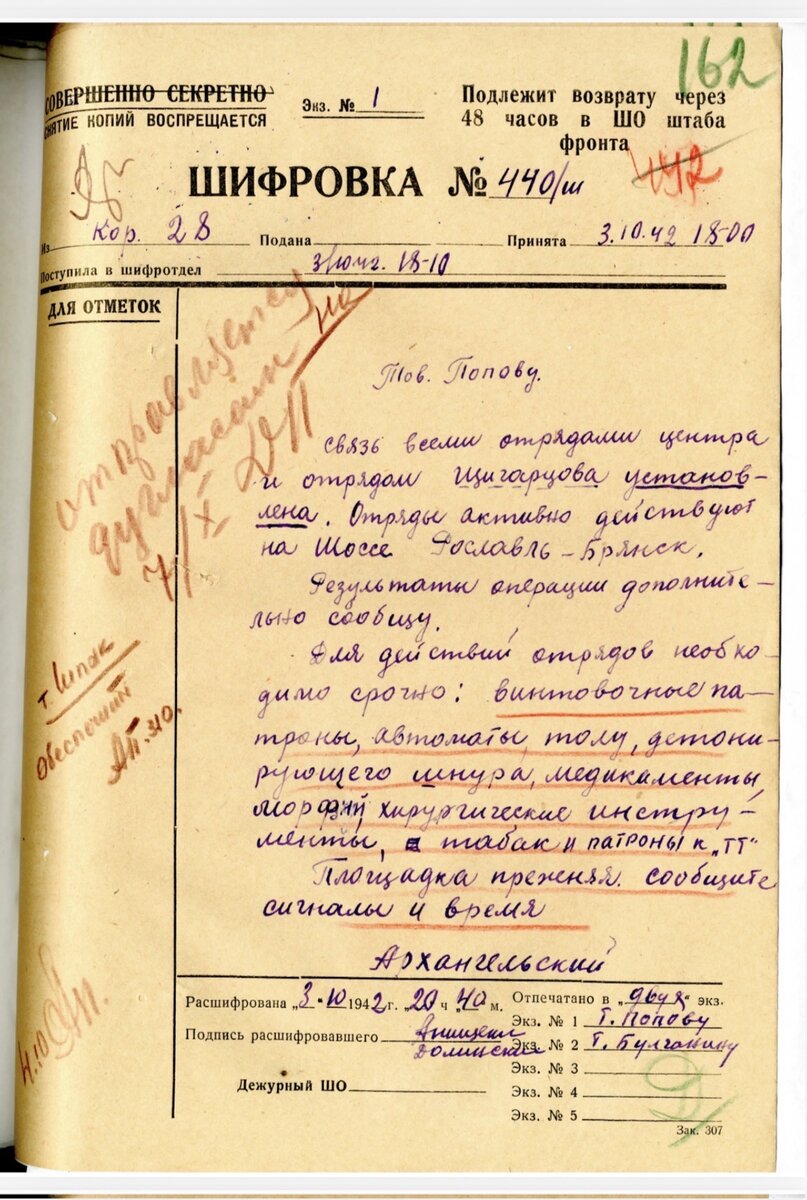 162
СОВЕРШЕННО СЕКРЕТНО
СНЯТИЕ КОПИЙ ВОСПРЕЩАЕТСЯ
Экз. № 1
Подлежит возврату через
48 часов в ШО штаба
фронта
ШИФРОВКА № 440/ш
Из Кор. 28 Подана Принята 3.10.42 18-00
Поступила в шифротдел 18-10
ДЛЯ ОТМЕТОК
отправляется на
дугласам
7/X
Тов. Попову.
связь всеми отрядами центра
и отрядом Щигарцова установ-
лена. Отряды активно действуют
на шоссе Рославль-Брянск.
Результаты операции дополните-
льно сообщу.
Для действий отрядов необхо-
димо срочно: винтовочные па-
троны, автоматы, толу, детони-
рующего шнура, медикаменты,
морфий, хирургические инстру-
менты, табак и патроны к „ТТ"
Площадка прежняя. сообщите
сигналы и время
Архангельский
т. Шпак
Обеспечить
3.10.
4.10
Расшифрована „3-10 1942 г. „20 ч 40 м.
Подпись расшифровавшего
Долинский
Дежурный ШО
Отпечатано в „двух" экз.
Экз. № 1 Т. Попову
Экз. № 2 Т. Булганину
Экз. № 3
Экз. № 4
Экз. № 5
Зак. 307